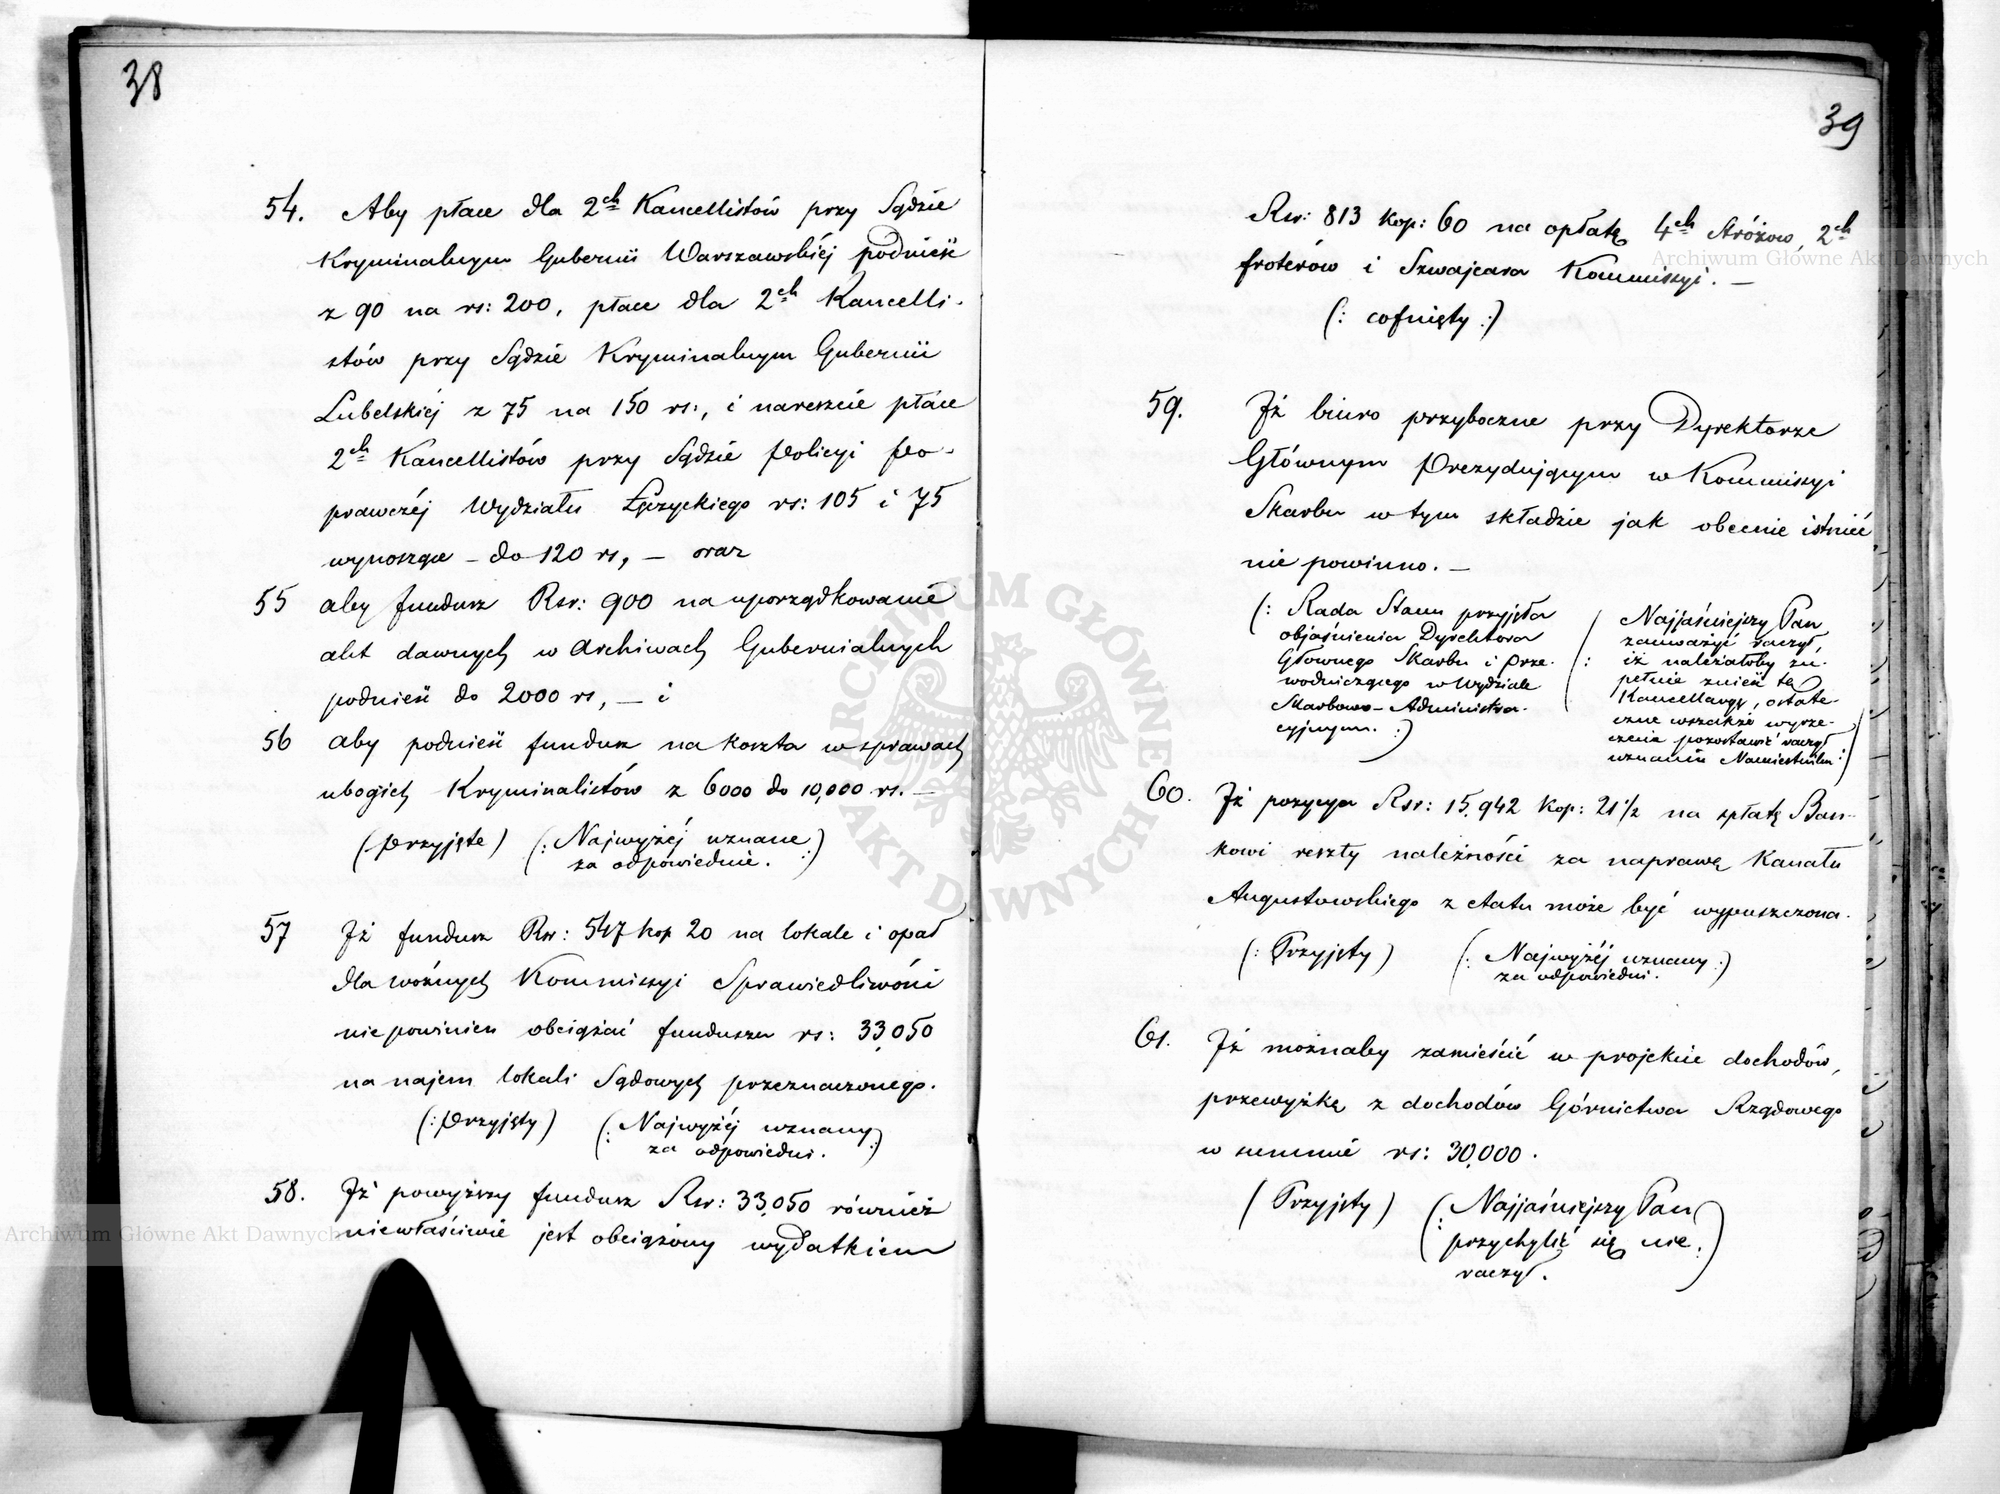 38
54. Aby płace dla 2ch Kancellistów przy Sądzie
Kryminalnym Gubernii Warszawskiéj podnieść
z 90 na rs: 200, płace dla 2ch Kancelli-
stów przy Sądzie Kryminalnym Gubernii
Lubelskiéj z 75 na 150 rs:, i nareszcie płace
2ch Kancellistów przy Sądzie Policyi Po-
prawczéj Wydziału Łęczyckiego rs: 105 i 75
wynoszące – do 120 rs, – oraz
55 aby fundusz Rsr: 900 na uporządkowanie
akt dawnych w Archiwach Gubernialnych
podnieść do 2000 rs, – i
56 aby podnieść fundusz na koszta w sprawach
ubogich Kryminalistów z 6000 do 10,000 rs. –
(Przyjęte) (: Najwyżéj uznane
za odpowiednie. :)
57 Iż fundusz Rsr: 547 kop 20 na lokale i opał
dla woźnych Kommissyi Sprawiedliwości
nie powinien obciążać funduszu rs: 33,050
na najem lokali Sądowych przeznaczonego.
(: Przyjęty) (: Najwyżéj uznany
za odpowiedni. :)
58. Iż powyższy fundusz Rsr: 33,050 również
niewłaściwie jest obciążony wydatkiem
39
Rsr: 813 kop: 60 na opłatę 4ch Stróżow, 2ch
froterów i Szwajcara Kommissyi. –
(: cofnięty :)
59. Iż biuro przyboczne przy Dyrektorze
Głównym Prezydującym w Kommissyi
Skarbu w tym składzie jak obecnie istnieć
nie powinno. –
(: Rada Stanu przyjęła
objaśnienia Dyrektora
Głownego Skarbu i Prze-
wodniczącego w Wydziale
Skarbowo-Administra-
cyjnym. :)
(: Najjaśniejszy Pan
zauważyć raczył,
iż należałoby zu-
pełnie znieść tę
Kancellaryę, ostate-
czne wszakże wyrze-
czenie pozostawić raczył
uznaniu Namiestnika :)
60. Iż pozycya Rsr: 15,942 kop: 21 1/2 na spłatę Ban-
kowi reszty należności za naprawę Kanału
Augustowskiego z etatu może być wypuszczona.
(: Przyjęty) (: Najwyżéj uznany :)
za odpowiedni.
61. Iż możnaby zamieścić w projekcie dochodów,
przewyżkę z dochodów Górnictwa Rządowego
w summie rs: 30,000.
(Przyjęty) (: Najjaśniejszy Pan
przychylić się nie
raczył. :)
Archiwum Główne Akt Dawnych
Archiwum Główne Akt Dawnych
ARCHIWUM GŁÓWNE AKT DAWNYCH